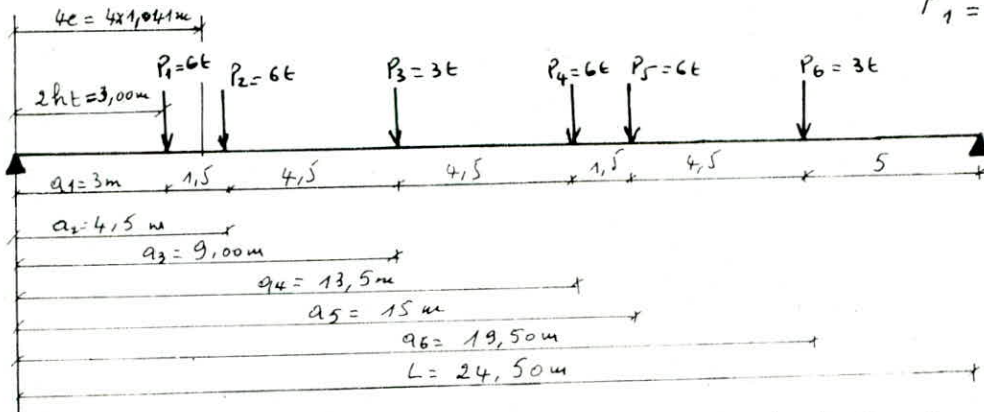 4e = 4x1,041m
P1 =
P1=6t P2=6t P3=3t P4=6t P5=6t P6=3t
2ht=3,00m
a1=3m 1,5 4,5 4,5 1,5 4,5 5
a2=4,5 m
a3=9,00m
a4=13,5m
a5=15m
a6=19,50m
L=24,50m